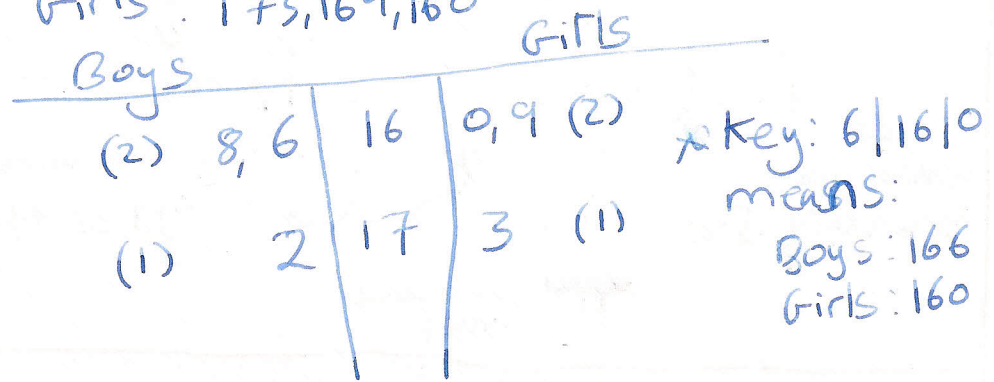 Girls : 173, 169, 160
Boys Girls
(2) 8, 6 | 16 | 0, 9 (2)
(1) 2 | 17 | 3 (1)
* Key: 6|16|0
means:
Boys: 166
Girls: 160